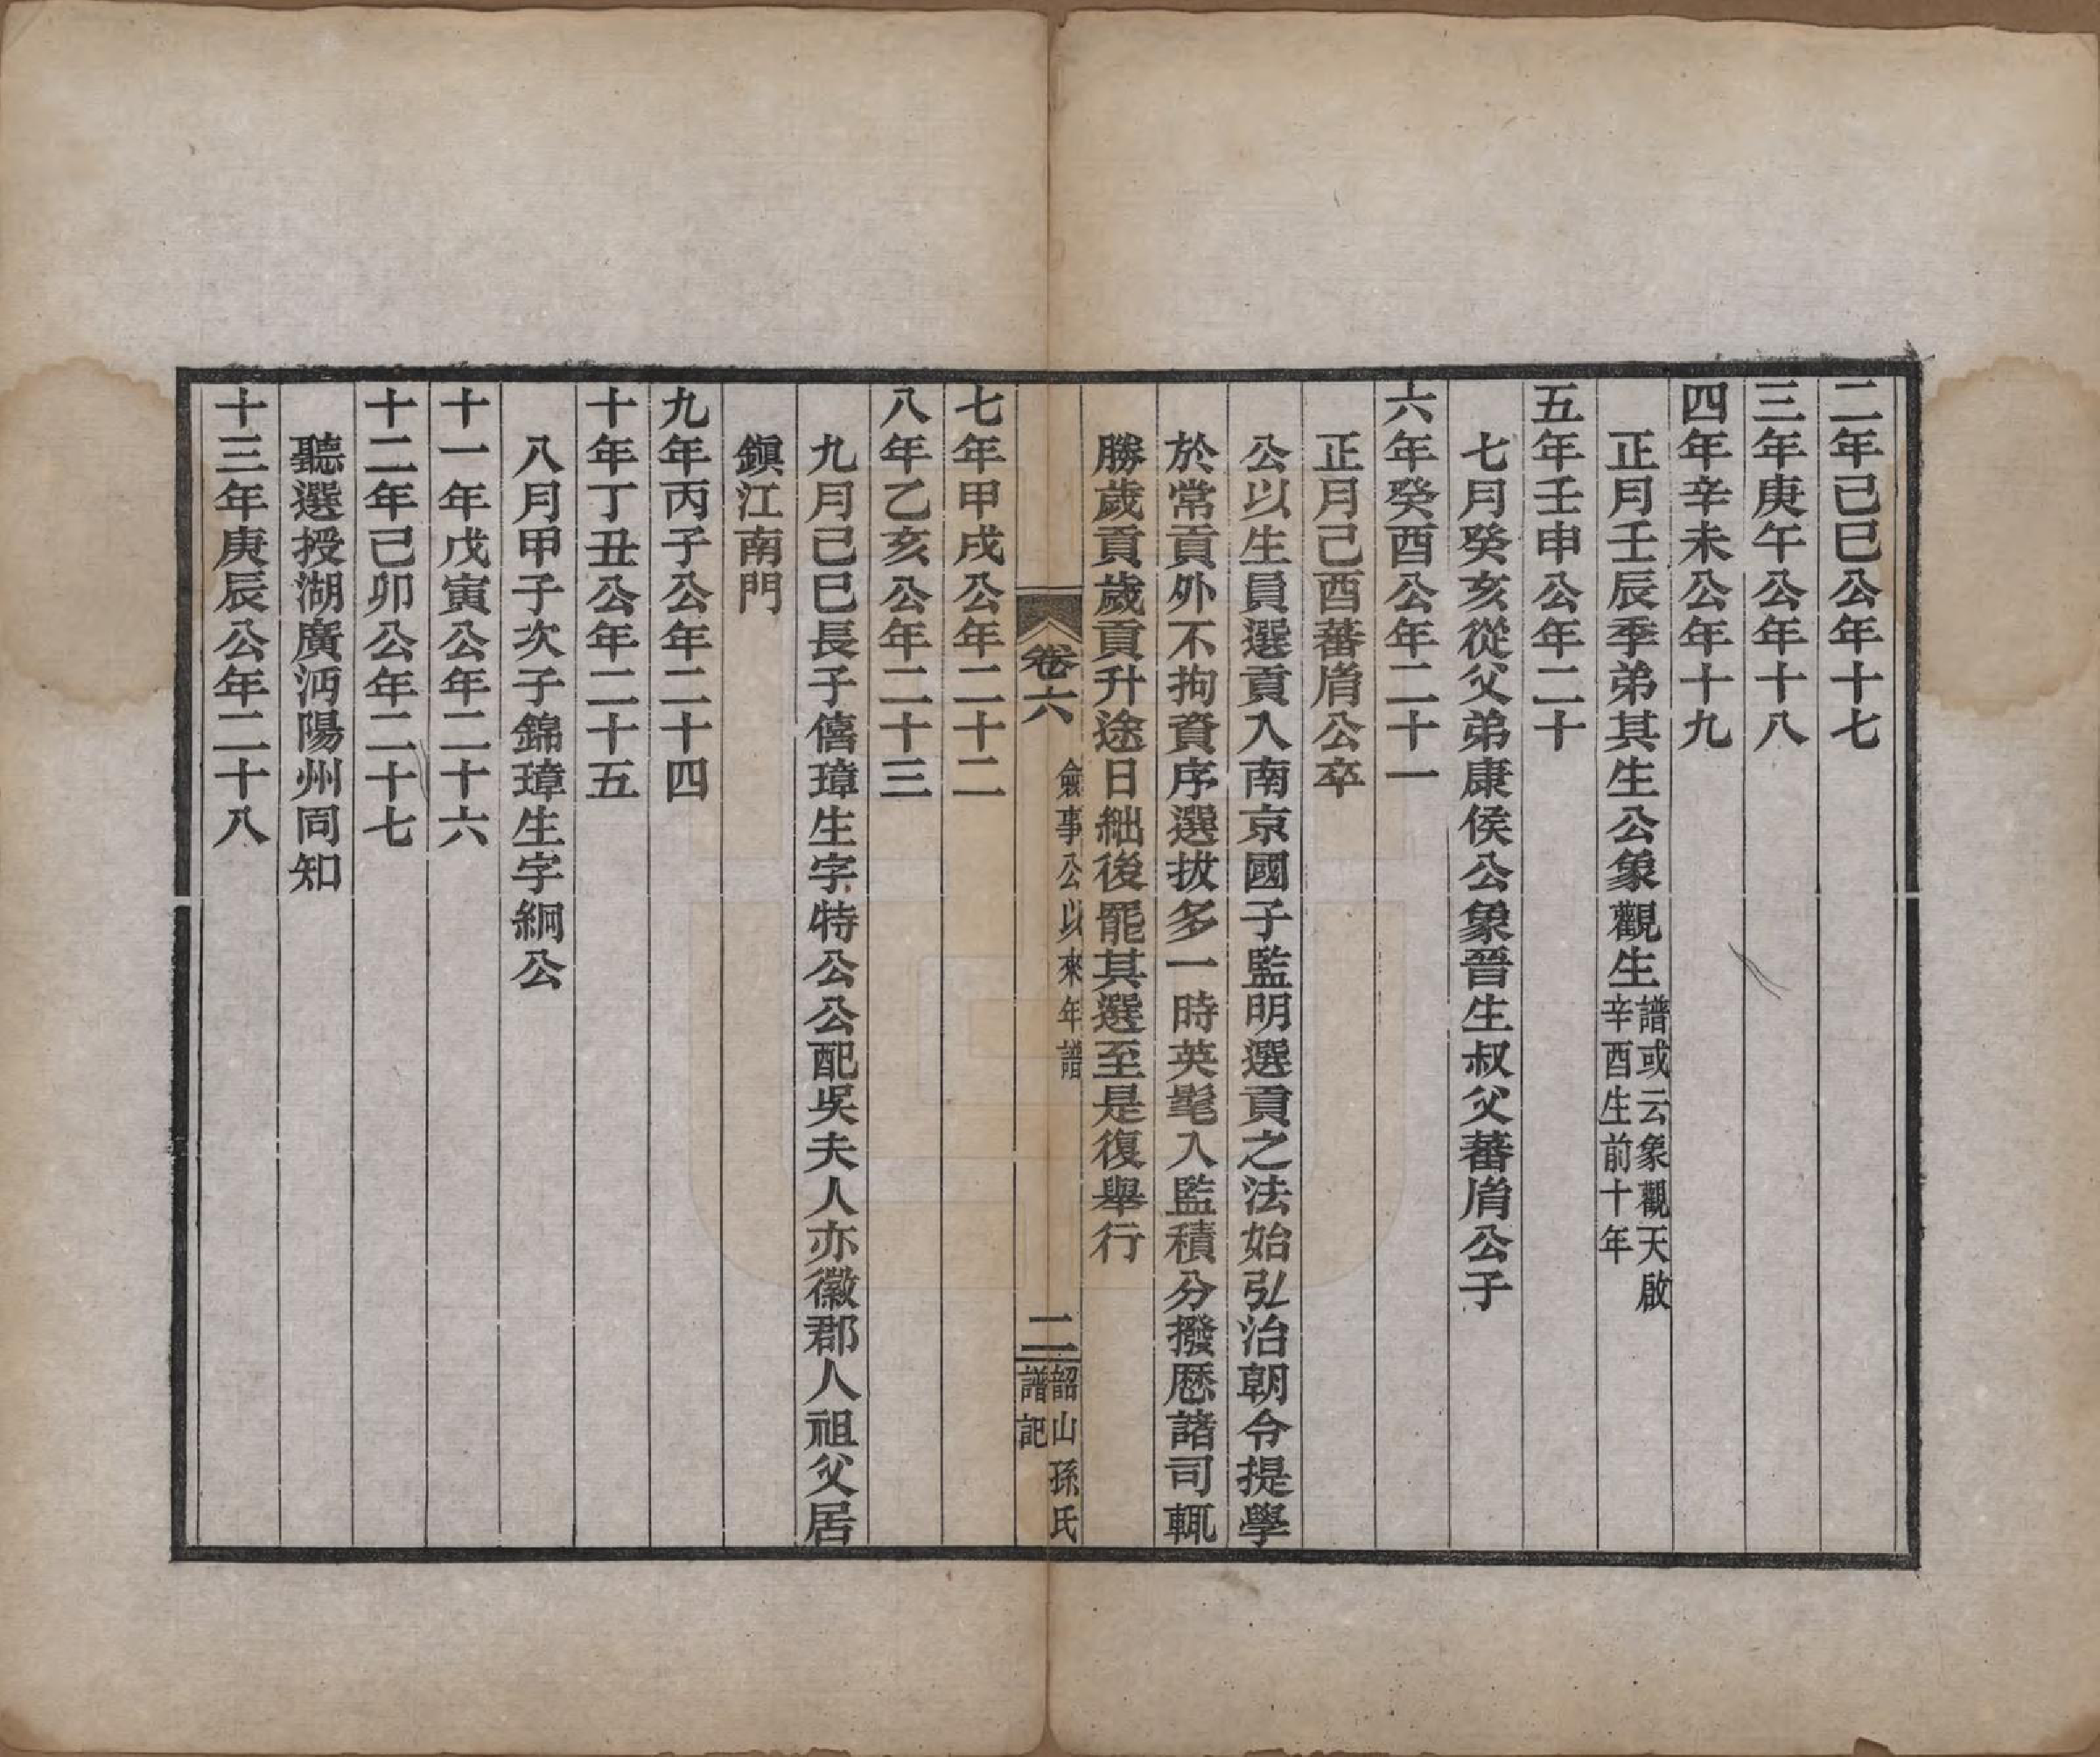 二年己巳公年十七
三年庚午公年十八
四年辛未公年十九
正月壬辰季弟其生公象觀生譜或云象觀天啟辛酉生前十年
五年壬申公年二十
七月癸亥從父弟康侯公象晉生叔父蕃㡽公子
六年癸酉公年二十一
正月己酉蕃㡽公卒
公以生員選貢入南京國子監明選貢之法始弘治朝令提學
於常貢外不拘資序選拔多一時英髦入監積分撥歷諸司輒
勝歲貢歲貢升途日絀後罷其選至是復舉行
卷六
僉事公以來年譜
二
韶山孫氏譜記
七年甲戌公年二十二
八年乙亥公年二十三
九月己巳長子僖璋生字特公公配吳夫人亦徽郡人祖父居
鎭江南門
九年丙子公年二十四
十年丁丑公年二十五
八月甲子次子錦璋生字絅公
十一年戊寅公年二十六
十二年己卯公年二十七
聽選授湖廣沔陽州同知
十三年庚辰公年二十八